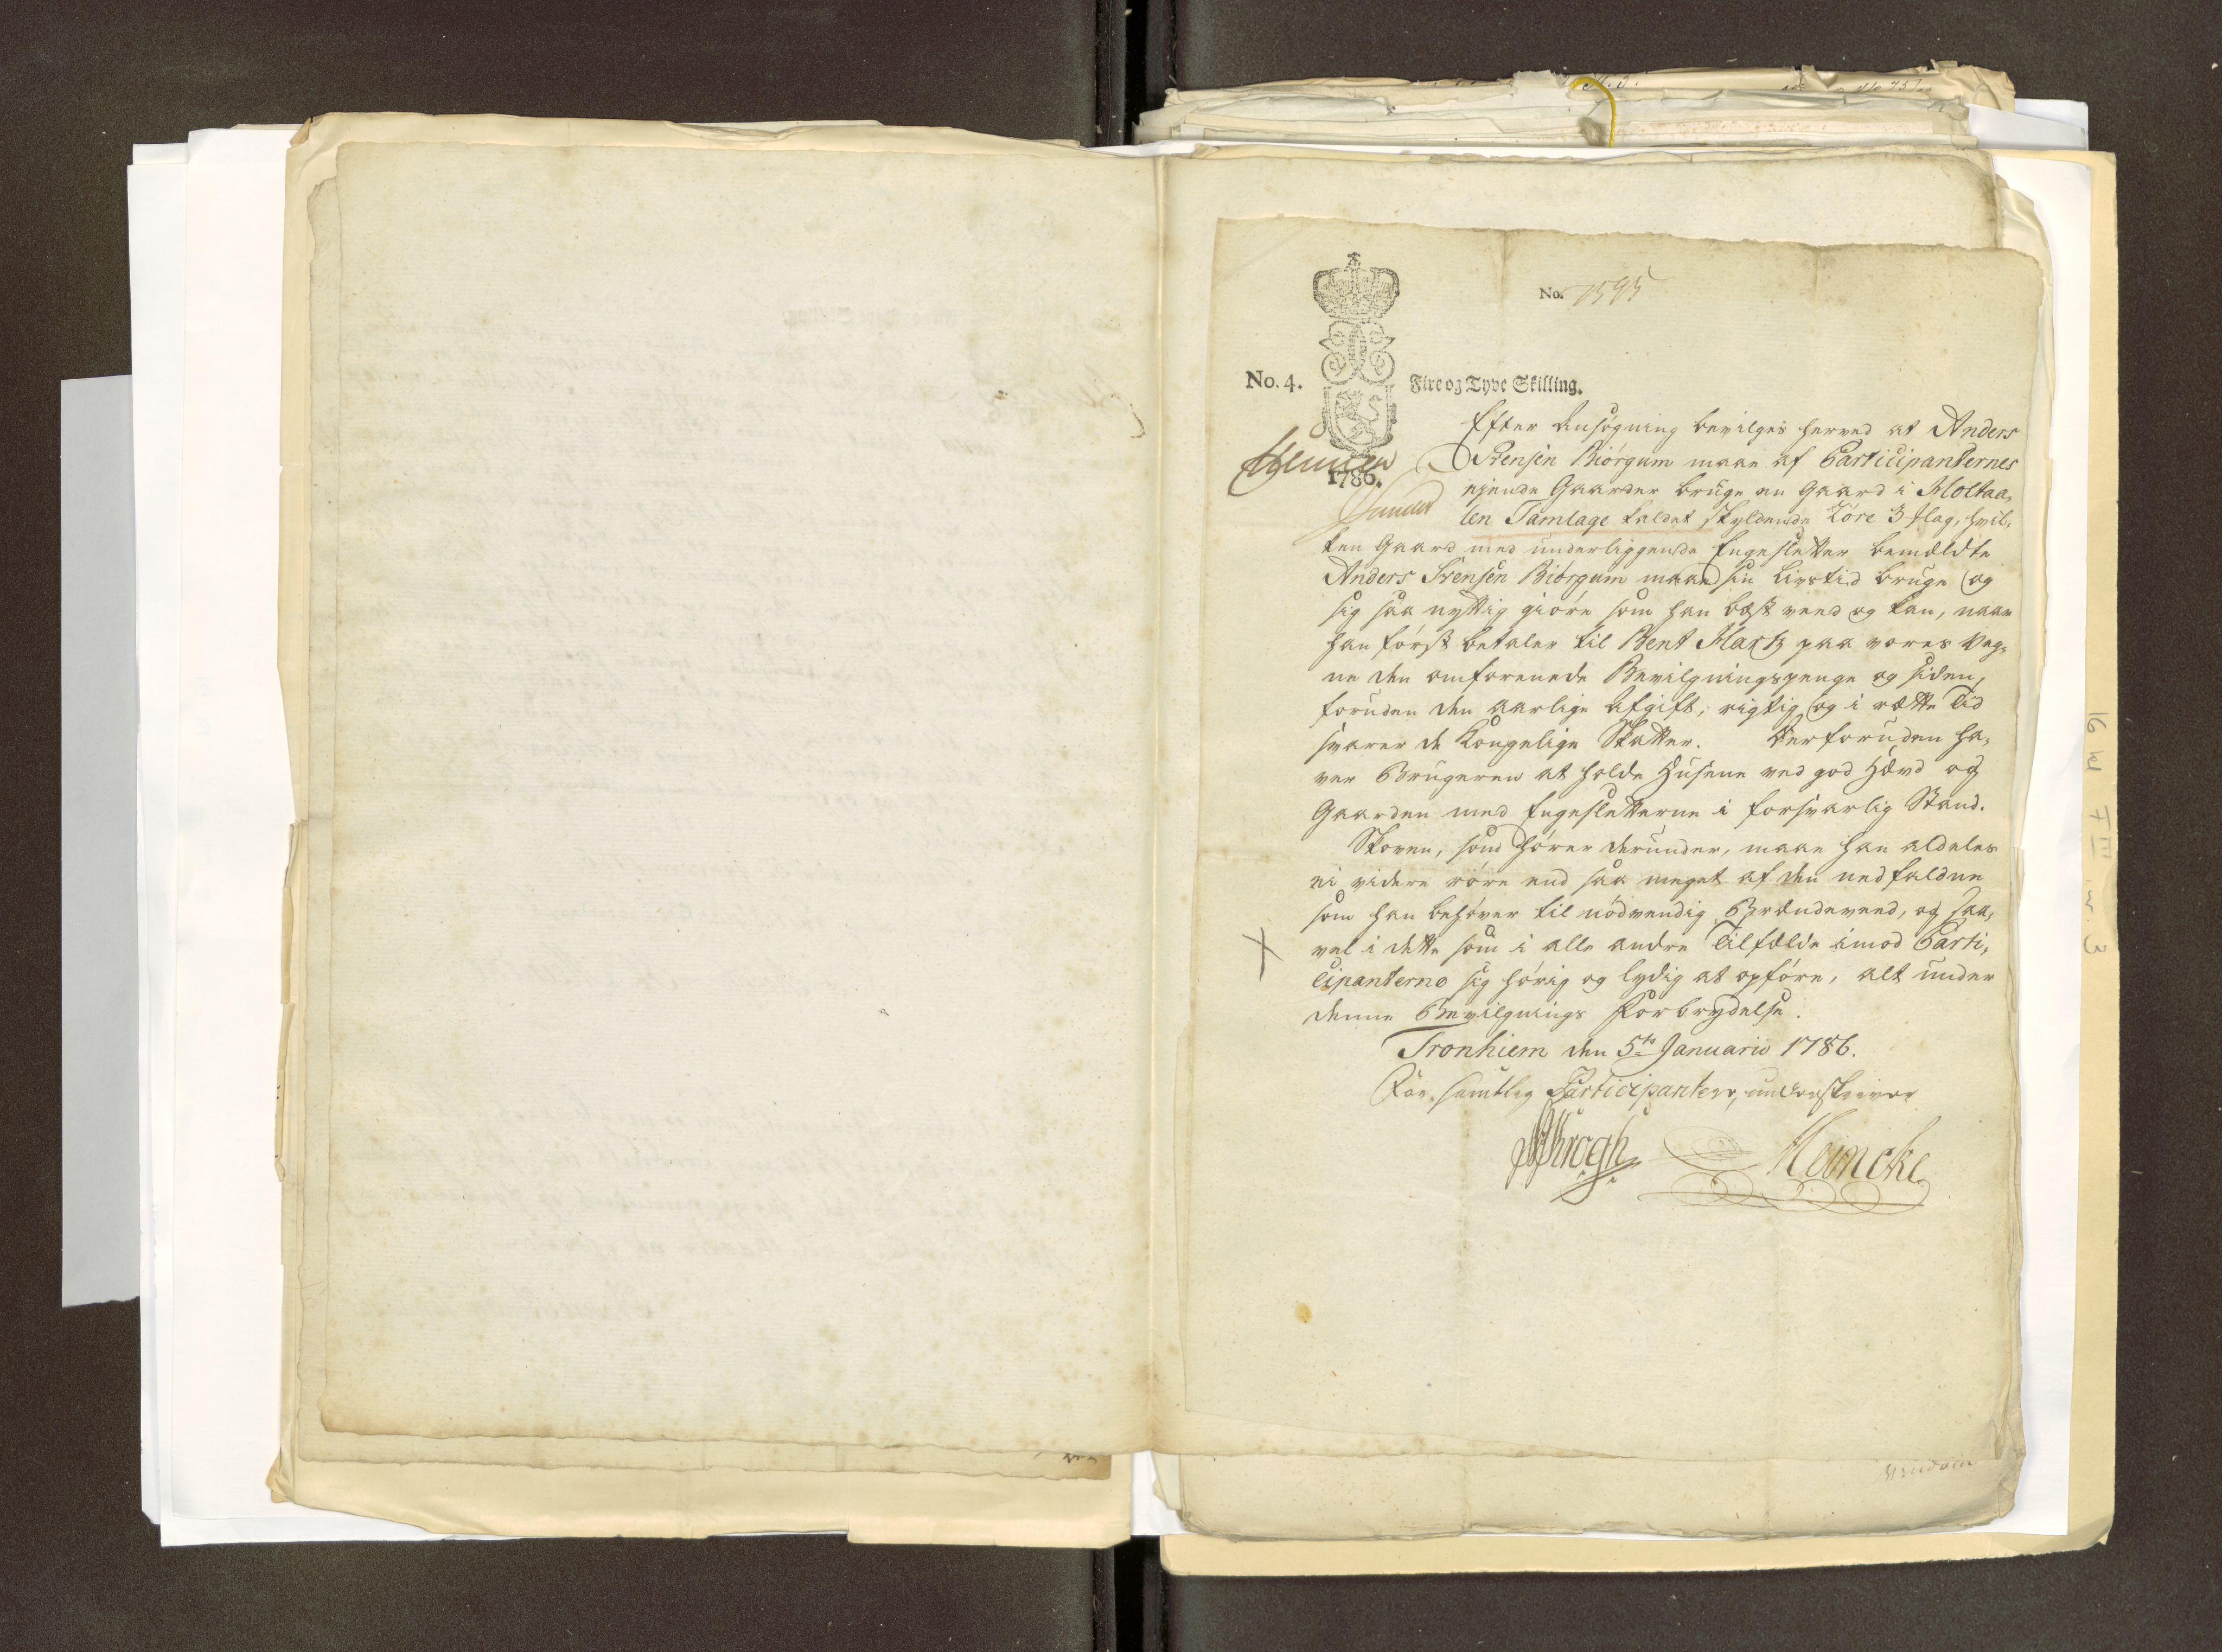 No. 1595
No. 4. Fire og Tyve Skilling.
1786.
Efter Ansøgning bevilges herved at Anders
Svensen Biörgum maae af Participanternes
ejende Gaarder bruge en Gaard i Moltaa,
len Tamlage kaldet skyldende Köre 3 Mlag, hvil,
ken Gaard med underliggende Engesletter bemældte
Anders Svensen Biörgum maae sin Livstid bruge og
sig saa nyttig giöre som han best veed og kan, naar
han först betaler til Bent Hartz paa vores Veg,
ne den omforenede Bevilgningspenge og siden,
foruden den aarlige Afgift, rigtig og i rette Tid
svarer de Kongelige Skatter. Derforuden ha,
ver Brugeren at holde Husene ved god Hævd og
Gaarden med Engesletterne i forsvarlig Stand.
Skoven, som hører derunder, maae han aldeles
ei videre röre end saa meget af den nedfaldne
som han behöver til nödvendig Brændeveed, og saa,
vel i dette som i alle andre Tilfælde imod Parti,
cipanterne sig hörig og lydig at opföre, alt under
denne Bevilgnings Forbrydelse.
Tronhiem den 5te Januario 1786.
For samtlig Participantere, underskriver
Krogh Meincke
16 kl F III nr. 3